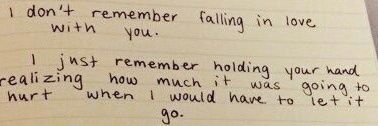 I don't remember falling in love
with you.
I just remember holding your hand
realizing how much it was going to
hurt when I would have to let it
go.